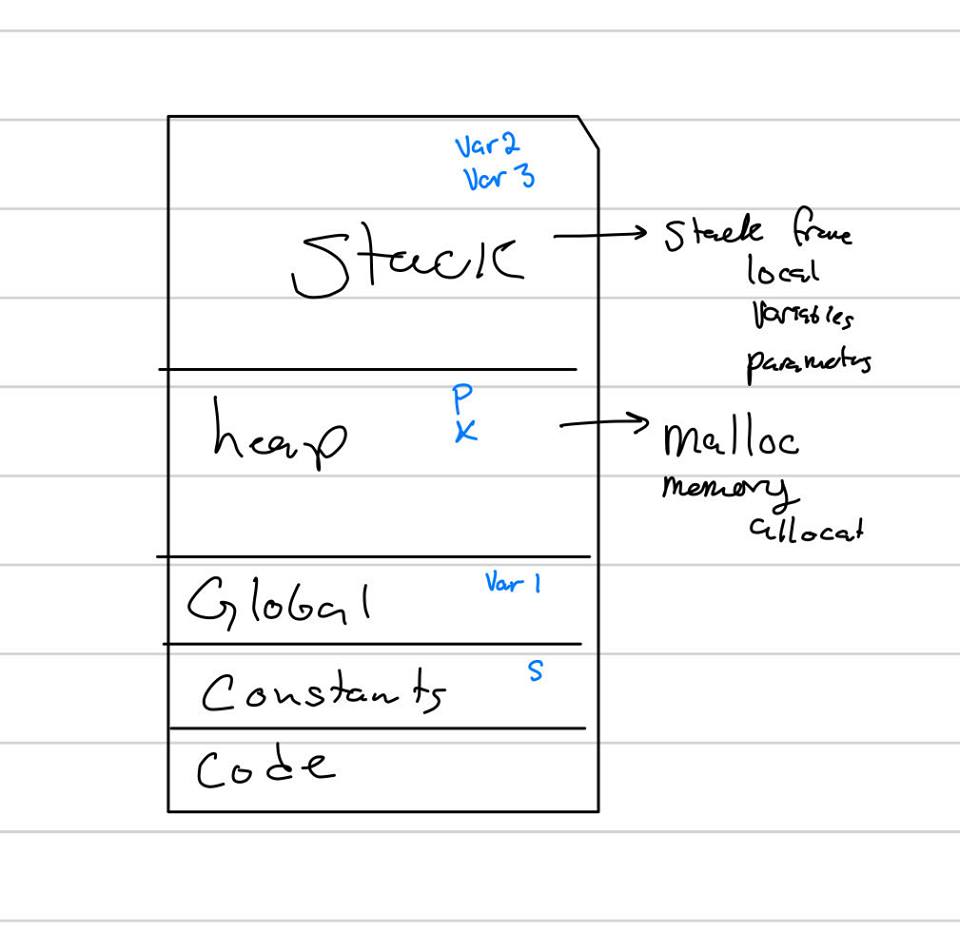 Var 2
Var 3
Stack
Stack frame
local
Variables
parameters
heap
P
X
malloc
memory
allocat
Global
Var 1
Constants
S
Code